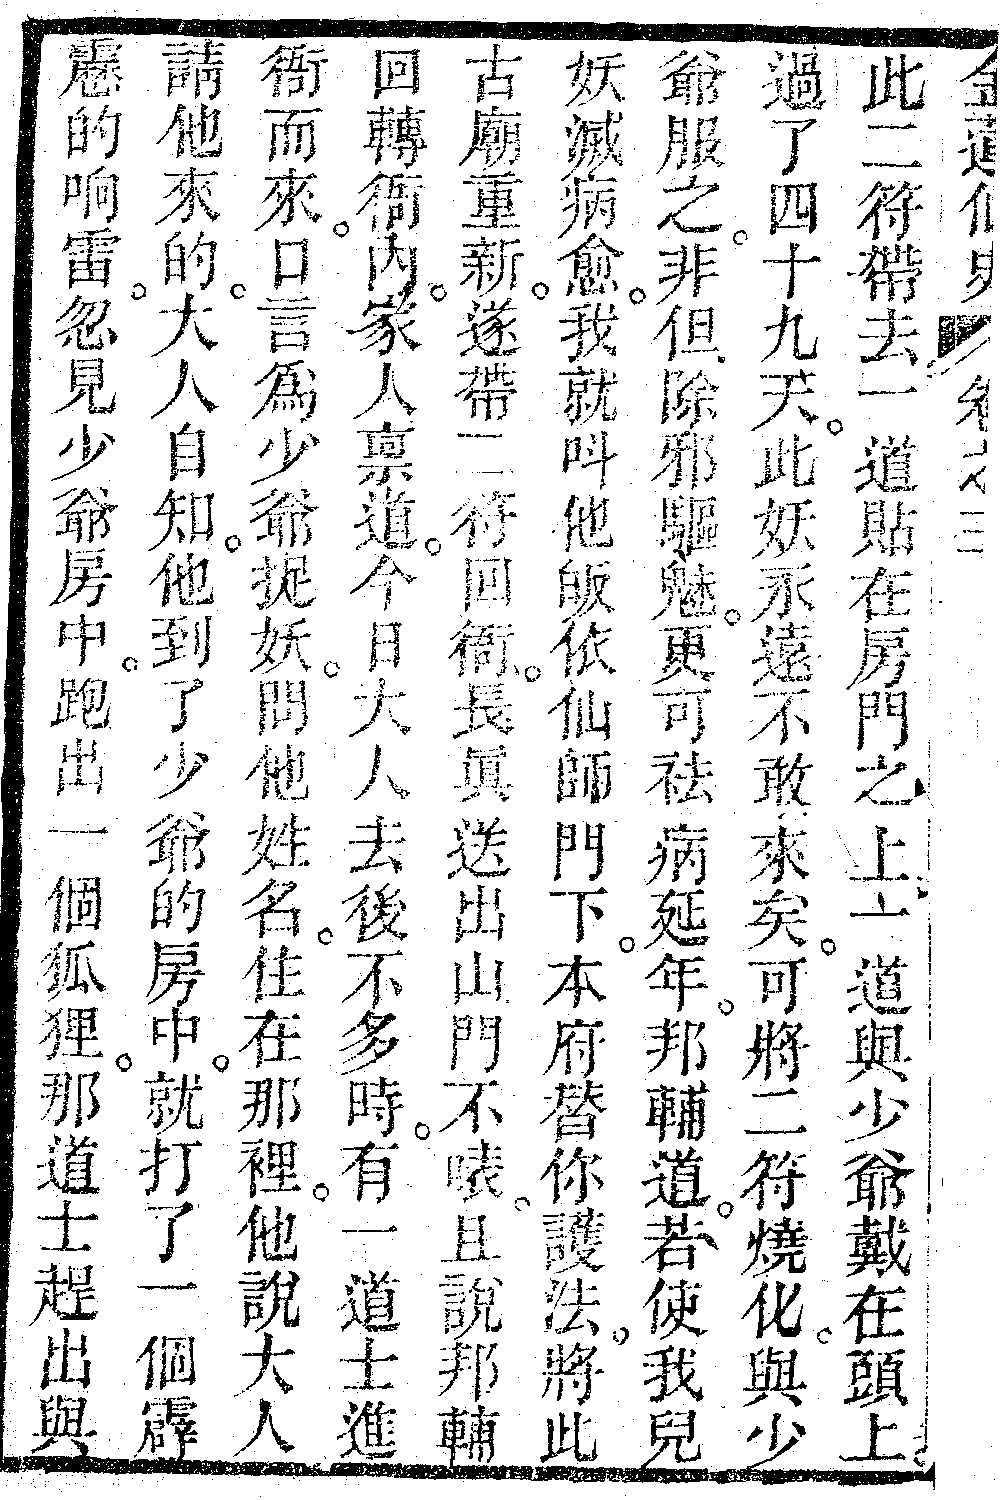 金蓮仙史 卷之三
此二符帶去一道貼在房門之上一道與少爺戴在頭上
過了四十九天。此妖永遠不敢來矣。可將二符燒化。與少
爺服之。非但除邪驅魅。更可祛病延年。邦輔道。若使我兒
妖滅病愈。我就呌他皈依仙師門下。本府替你護法。將此
古廟重新。遂帶二符回衙。長眞送出山門不表。且說邦輔
回轉衙內。家人禀道。今日大人去後不多時。有一道士進
衙而來。口言爲少爺捉妖。問他姓名。住在那裡。他說大人
請他來的。大人自知。他到了少爺的房中。就打了一個霹
靂的响雷。忽見少爺房中。跑出一個狐狸。那道士趕出與